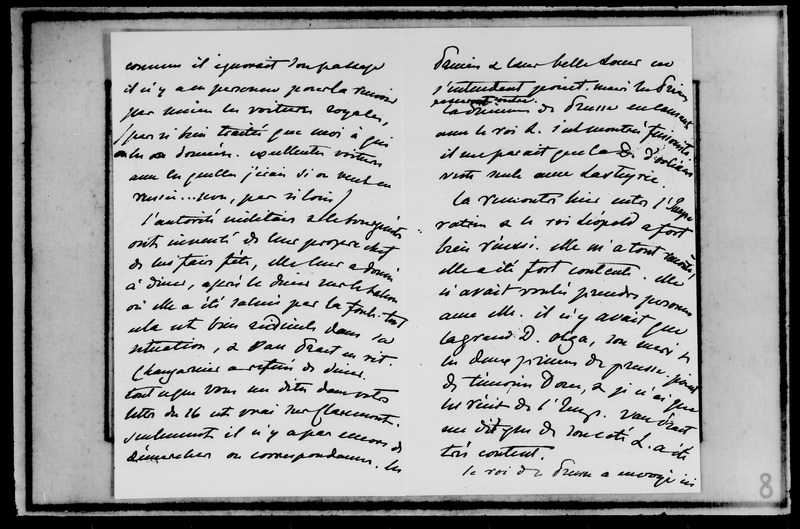 comme il ignorait son passage
il n'y a eu personne pour la
par les voitures royales,
(pas si bien traité que moi à qui
on les a données. excellentes voitures
avec lesquelles j'irais si on veut en
non, pas si loin)
l'autorité militaire
ont inventé de leur propre chef
de lui faire fête, elle leur a donné
à diner, après le diner sur le balcon
où elle a été saluée par la foule. tout
cela est bien ridicule dans sa
situation, & Van Praet en rit.
Changarnier a refusé de diner.
tout ce que vous me dites dans votre
lettre du 26 est vrai sur Claremont.
seulement il n'y a pas encore de
démarches ou correspondance. les
Princes & leur belle soeur ne
s'entendent point. mais les Princes
la Princesse de Prusse en causant
avec le roi L. s'est montrée fusioniste.
il me parait que la D. d'orléans
reste seule avec Lasteyrie.
La rencontre hier entre l'Impé
ratrice & le roi Léopold a fort
bien réussi. elle m'a tout raconté,
elle a été fort contente. elle
n'avait voulu prendre personne
avec elle. il n'y avait que
la grande D. olga, son mari &
les deux princes de prusse. point
de témoins donc, & je n'ai que
les récits de l'Imp. Van Praet
me dit que de son coté L. a été
très content.
le roi de Prusse a envoyé ici
8